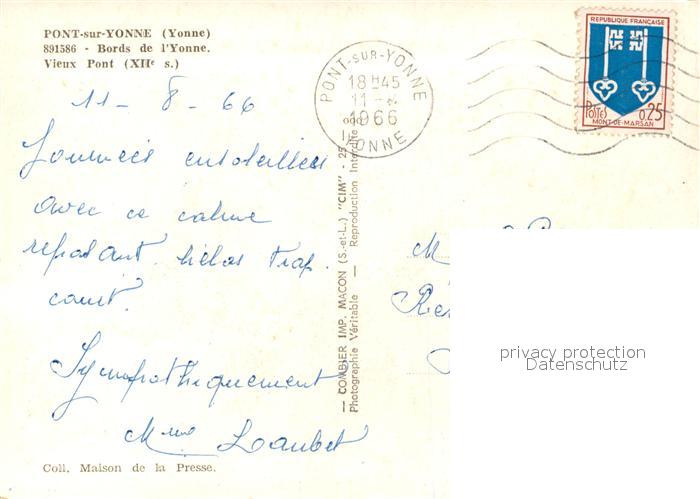 PONT-sur-YONNE (Yonne)
891586 - Bords de l'Yonne.
Vieux Pont (XIIe s.)
11 - 8 - 66
Journées ensoleillées
avec ce calme
reposant. hélas trop.
court.
Sympathiquement
Mme Laubet
Coll. Maison de la Presse.
— COMBIER IMP. MACON (S.-et-L.) "CIM" - 25
Photographie Véritable — Reproduction Interdite
PONT-SUR-YONNE
18H45
11 - 8
1966
YONNE
REPUBLIQUE FRANÇAISE
POSTES 0,25
MONT-DE-MARSAN
M
privacy protection
Datenschutz